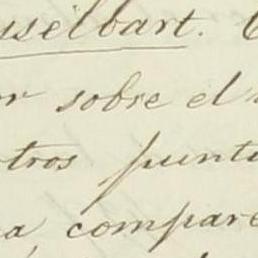 usëlbart.
or sobre el
otros punt
a, compare